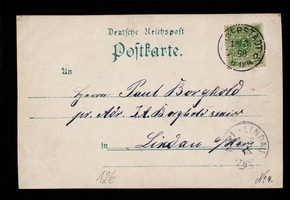 Deutsche Reichspost
Postkarte.
An
Herrn Paul Borghold
pr. Adr. J. A. Borghold senior
in Lindau a/Harz
LINDAU
126
No 4.